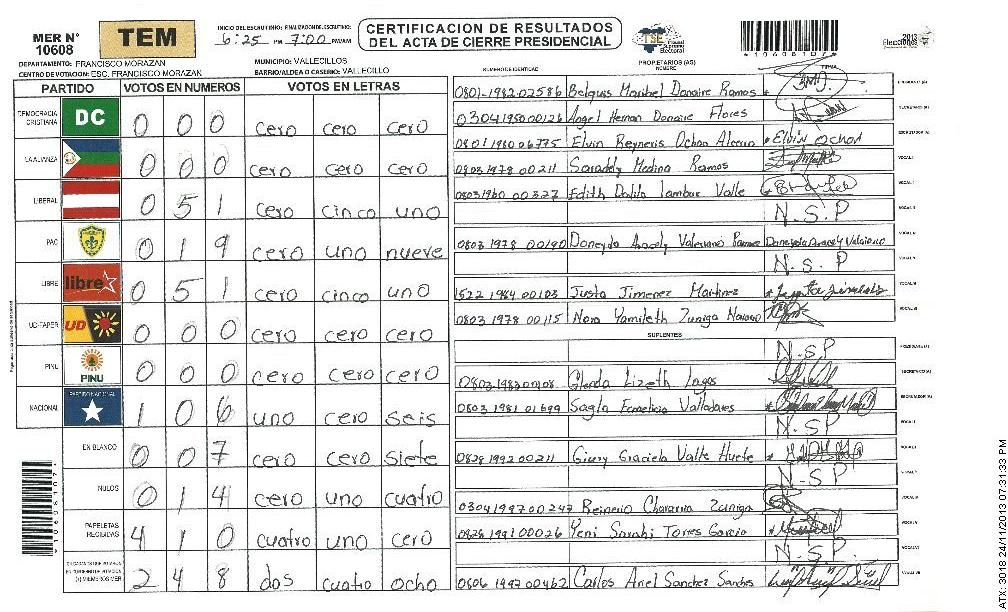 MER N° 10608
TEM
INICIO DEL ESCRUTINIO: FINALIZACION DE ESCRUTINIO:
6:25 PM 7:00 PM/AM
CERTIFICACION DE RESULTADOS
DEL ACTA DE CIERRE PRESIDENCIAL
TSE Tribunal Supremo Electoral
*10608107*
2013
Elecciones
DEPARTAMENTO: FRANCISCO MORAZAN
MUNICIPIO: VALLECILLOS
CENTRO DE VOTACION: ESC. FRANCISCO MORAZAN
BARRIO/ALDEA O CASERIO: VALLECILLO
PARTIDO VOTOS EN NUMEROS VOTOS EN LETRAS
DEMOCRACIA CRISTIANA DC 0 0 0 cero cero cero
LA ALIANZA 0 0 0 cero cero cero
LIBERAL 0 5 1 cero cinco uno
PAC 0 1 9 cero uno nueve
LIBRE libre 0 5 1 cero cinco uno
UD-FAPER UD 0 0 0 cero cero cero
PINU PINU 0 0 0 cero cero cero
NACIONAL PARTIDO NACIONAL 1 0 6 uno cero seis
EN BLANCO 0 0 7 cero cero siete
NULOS 0 1 4 cero uno cuatro
PAPELETAS RECIBIDAS 4 1 0 cuatro uno cero
2 4 8 dos cuatro ocho
NUMERO DE IDENTIDAD PROPIETARIOS (AS) NOMBRE FIRMA
0801-1982-02586 Belquis Maribel Donaire Ramos PRESIDENTE (A)
0304198000126 Angel Hernan Donaire Flores SECRETARIO (A)
0801198006775 Elvin Reyneris Ochoa Elvin Ochoa ESCRUTADOR (A)
0803 1978 00211 Medina Ramos VOCAL I
08031960 00327 Edith Dalila Valle
N.S.P
0803 1978 00190 Aracely Ramos
N.S.P
1522 1984 00103 Justa Jimenez Martinez
0803 1978 00115 Nora Yamileth Zuniga
SUPLENTES
N.S.P PRESIDENTE (A)
Glenda Lizeth Lagos SECRETARIO (A)
0803 1981 01699 Valladares ESCRUTADOR (A)
N.S.P
0828 1992 00211 Graciela Valle
N.S.P
0304 1997 00247 Zuniga
0828 1991 00026 Yeni Sarahi Torres Garcia
N.S.P.
0806 1992 00462 Carlos Ariel Sanchez
*10608107*
ATX: 3018 24/11/2013 07:31:33 PM